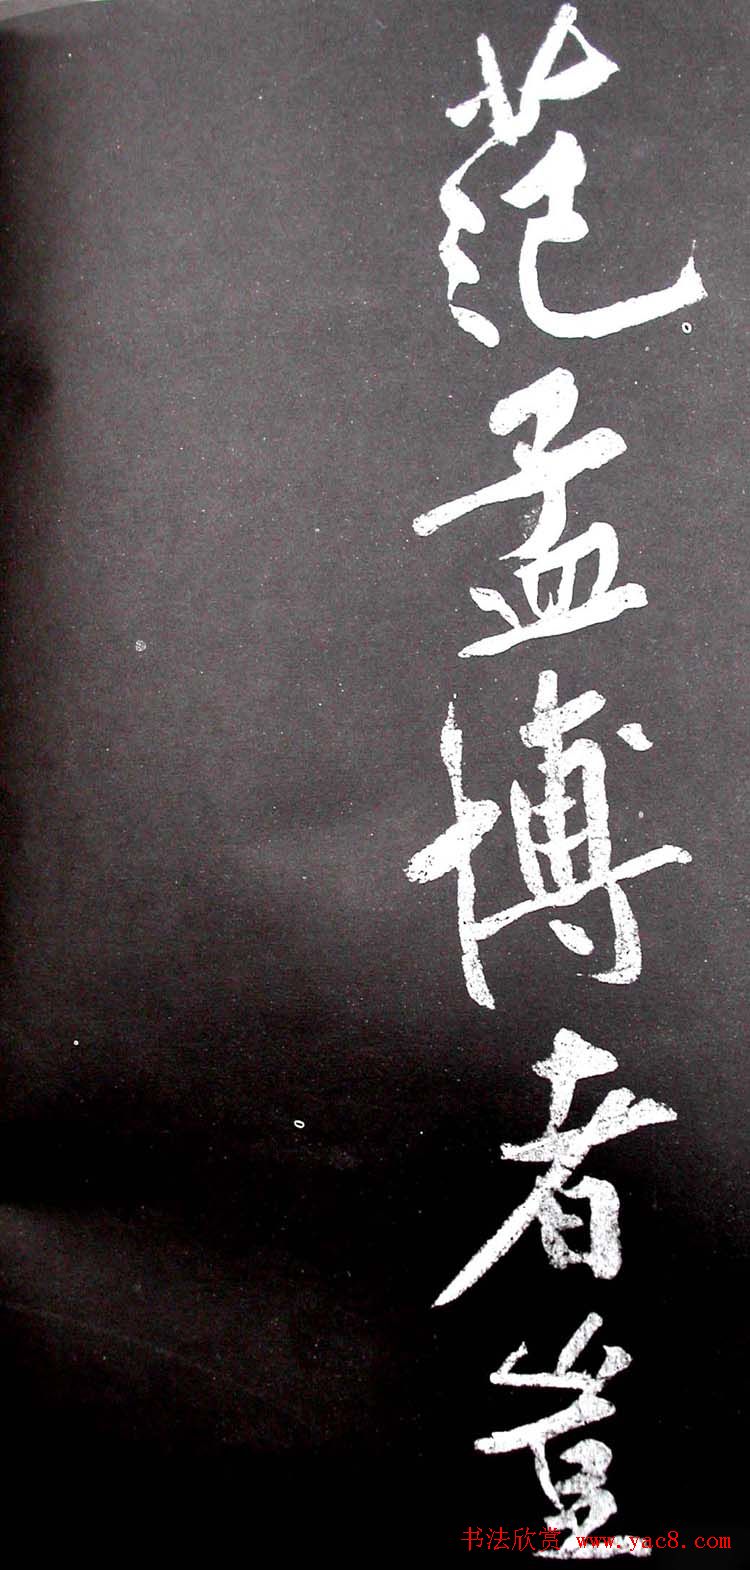 范孟博者豈
书法欣赏 www.yac8.com